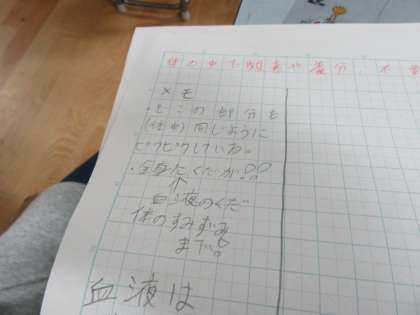 体の中で酸素や養分、不要
メモ
・どこの部分も
(はく)同じように
ピクピクしている。
・全身たくだが!?
↑
血液のくだ
体のすみずみ
まで!
血液は